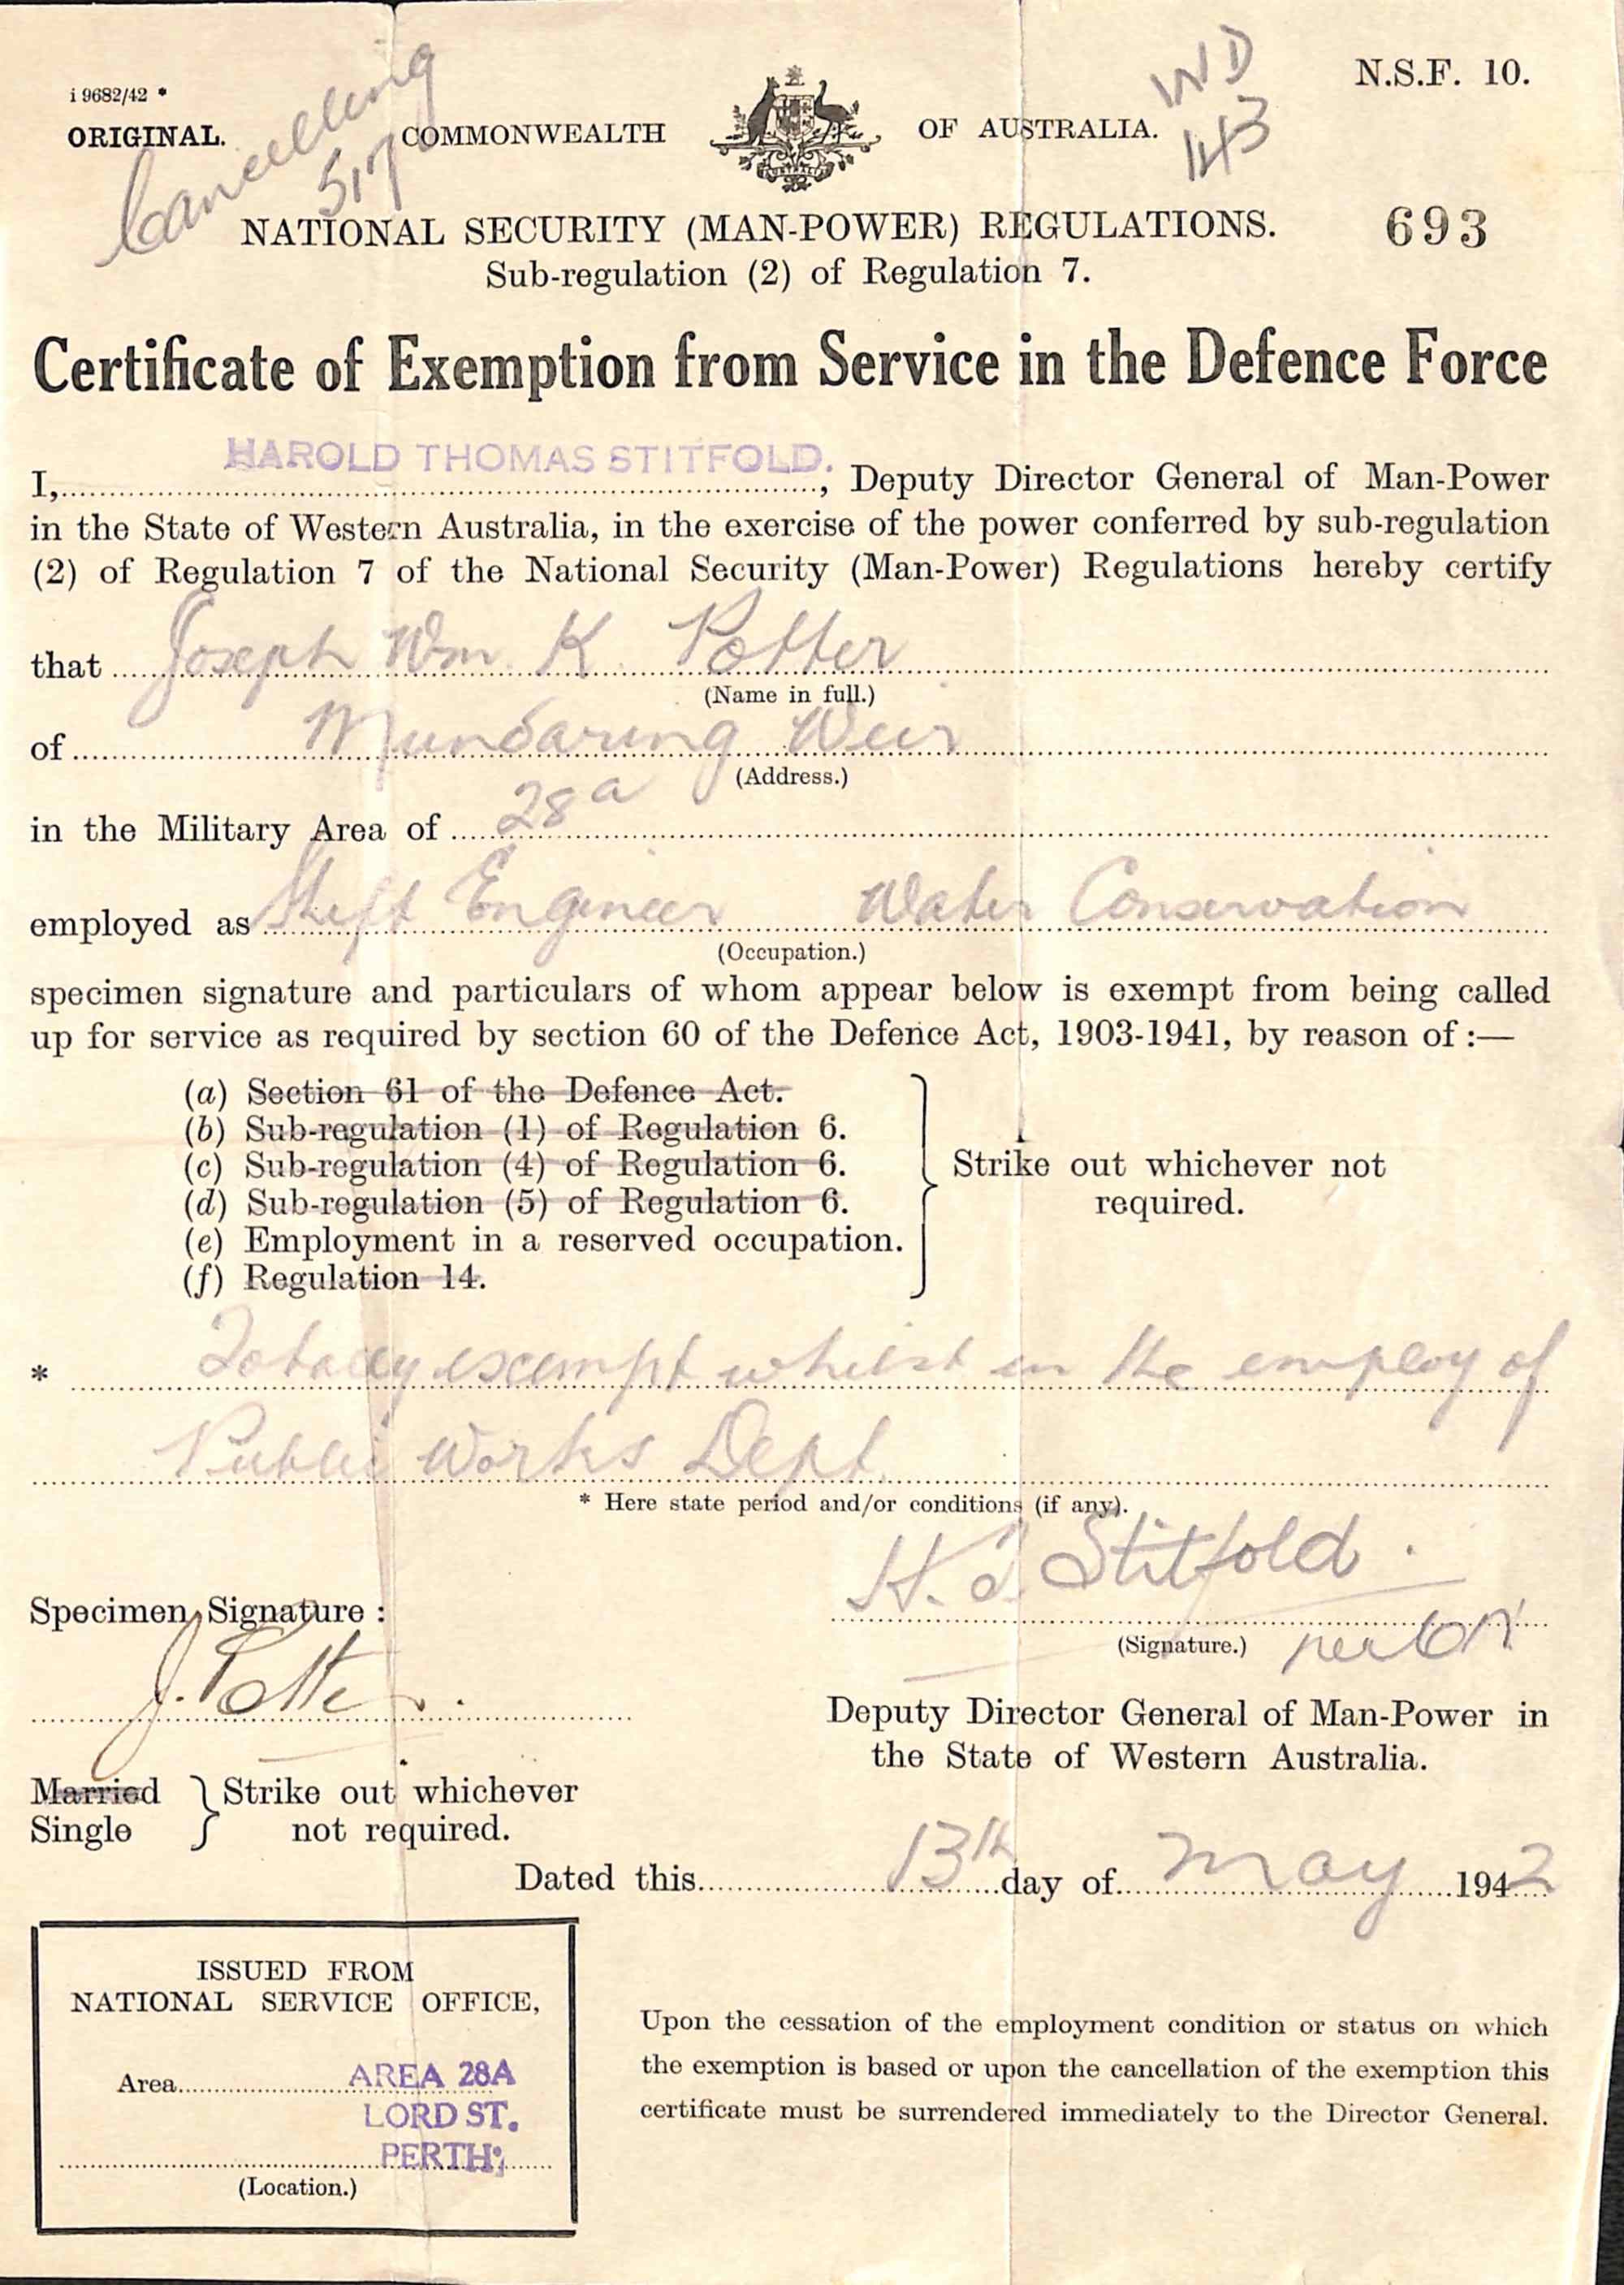 i 9682/42 *
N.S.F. 10.
ORIGINAL.
Cancelling
517
COMMONWEALTH OF AUSTRALIA.
WD
143
NATIONAL SECURITY (MAN-POWER) REGULATIONS.
693
Sub-regulation (2) of Regulation 7.
Certificate of Exemption from Service in the Defence Force
HAROLD THOMAS STITFOLD.
I,, Deputy Director General of Man-Power
in the State of Western Australia, in the exercise of the power conferred by sub-regulation
(2) of Regulation 7 of the National Security (Man-Power) Regulations hereby certify
that Joseph Wm. K. Potter
(Name in full.)
of Mundaring Weir
(Address.)
in the Military Area of 28a
employed as Shift Engineer Water Conservation
(Occupation.)
specimen signature and particulars of whom appear below is exempt from being called
up for service as required by section 60 of the Defence Act, 1903-1941, by reason of :—
(a) Section 61 of the Defence Act.
(b) Sub-regulation (1) of Regulation 6.
(c) Sub-regulation (4) of Regulation 6.
(d) Sub-regulation (5) of Regulation 6.
(e) Employment in a reserved occupation.
(f) Regulation 14.
Strike out whichever not
required.
* Totally exempt whilst in the employ of
Public Works Dept.
* Here state period and/or conditions (if any).
H. T. Stitfold.
(Signature.) per
Specimen Signature :
J. Potter.
Deputy Director General of Man-Power in
the State of Western Australia.
Married
Single
Strike out whichever
not required.
Dated this 13th day of May 1942
ISSUED FROM
NATIONAL SERVICE OFFICE,
Area AREA 28A
LORD ST.
PERTH;
(Location.)
Upon the cessation of the employment condition or status on which
the exemption is based or upon the cancellation of the exemption this
certificate must be surrendered immediately to the Director General.